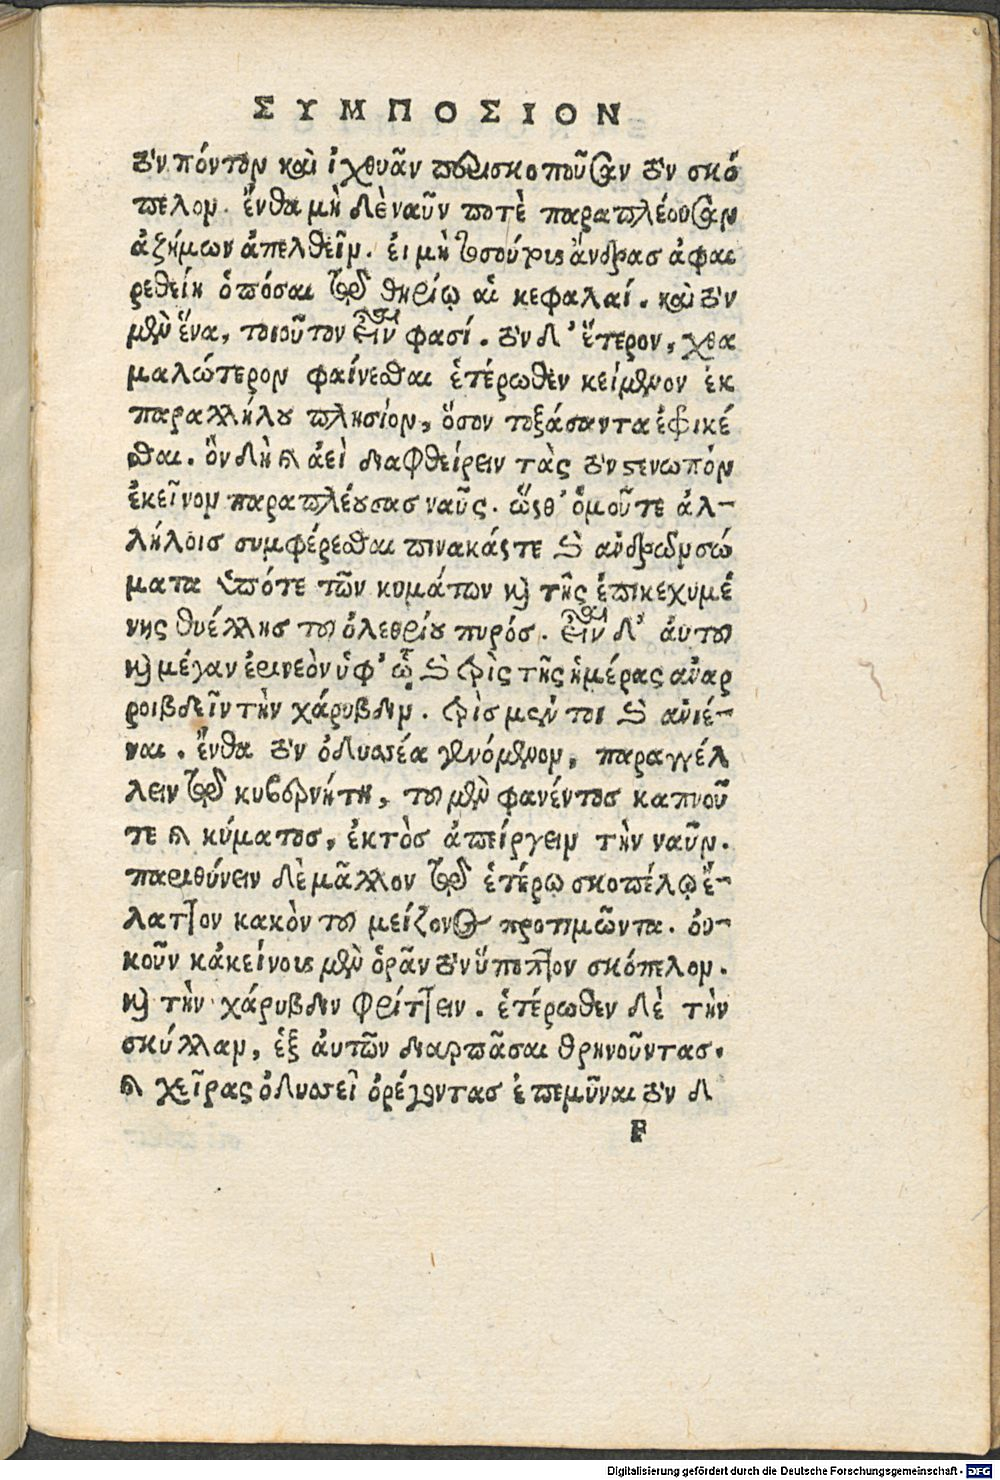 ΣΥΜΠΟΣΙΟΝ
τὸν πόντον καὶ ἰχθυᾶν περισκοποῦσαν τὸν σκό
πελον. ἔνθα μὴ δὲ ναῦν ποτὲ παραπλέουσαν
ἀζήμιων ἀπελθεῖν. εἰ μὴ τοσούτους ἄνδρας ἀφαι
ρεθείη ὁπόσαι τῷ θηρίῳ αἱ κεφαλαί. καὶ τὸν
μὲν ἕνα, τοιοῦτον εἶναι φασί. τὸν δ' ἕτερον, χθα
μαλώτερον φαίνεσθαι ἑτέρωθεν κείμενον ἐκ
παραλλήλου πλησίον, ὅσον τοξάσαντα ἐφικέ
σθαι. ὃν δὴ καὶ ἀεὶ διαφθείρειν τὰς τὸν στενωπὸν
ἐκεῖνον παραπλέουσας ναῦς. ὥσθ' ὁμοῦτε ἀλ-
λήλοις συμφέρεσθαι πινακάστε καὶ ἀνδρῶν σώ
ματα ὑπότε τῶν κυμάτων καὶ τῆς ἐπικεχυμέ
νης θυέλλης τοῦ ὀλεθρίου πυρός. εἶναι δ' αὐτοῦ
καὶ μέγαν ἐρινεὸν ὑφ' ᾧ καὶ τρὶς τῆς ἡμέρας ἀναρ
ροιβδεῖν τὴν χάρυβδιν. τρὶς μέν τοι καὶ ἀνιέ-
ναι. ἔνθα τὸν ὀδυσσέα γενόμενον, παραγγέλ
λειν τῷ κυβερνήτῃ, τοῦ μὲν φανέντος καπνοῦ
τε καὶ κύματος, ἐκτὸς ἀπείργειν τὴν ναῦν.
παριθύνειν δὲ μᾶλλον τῷ ἑτέρῳ σκοπέλῳ ἔ-
λαττον κακὸν τοῦ μείζονος προτιμῶντα. οὐ-
κοῦν κἀκείνους μὲν ὁρᾶν τὸν ὕποπτον σκόπελον.
καὶ τὴν χάρυβδιν φρίττειν. ἑτέρωθεν δὲ τὴν
σκύλλαν, ἐξ αὐτῶν διαρπᾶσαι θρηνοῦντας.
καὶ χεῖρας ὀδυσσεῖ ὀρέγοντας ἐπεμῦναι τὸν δ
F
Digitalisierung gefördert durch die Deutsche Forschungsgemeinschaft - DFG